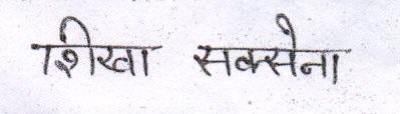 शिखा सक्सेना